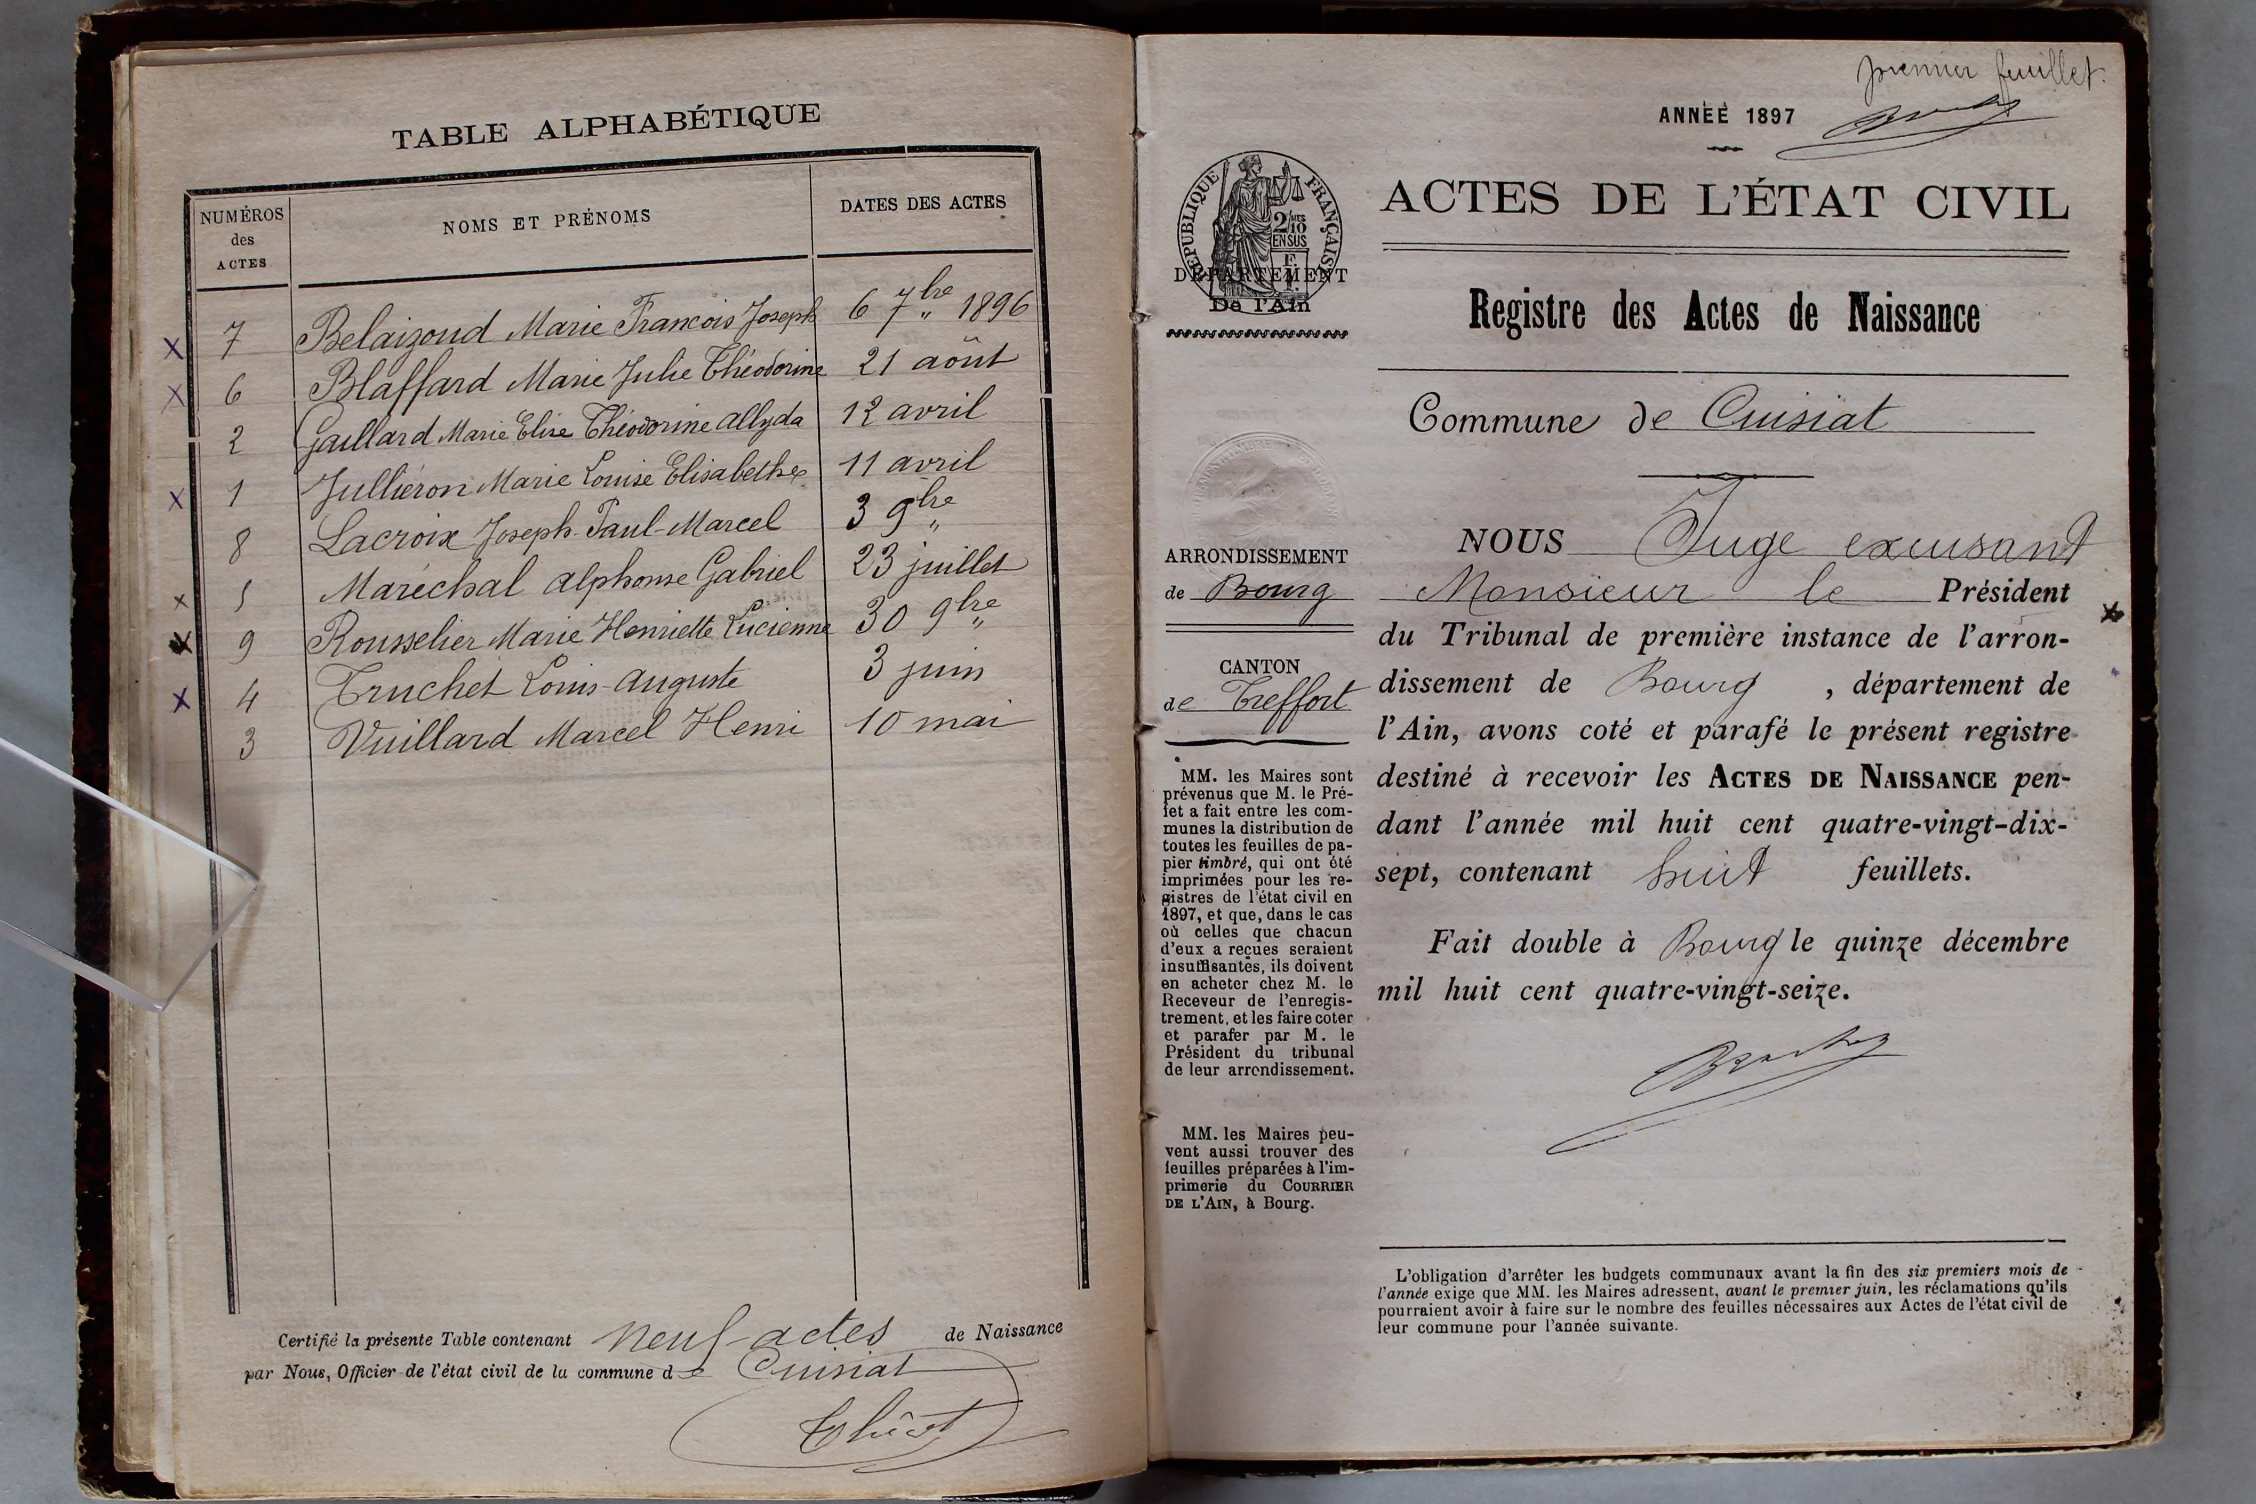 TABLE ALPHABÉTIQUE
NUMÉROS des ACTES NOMS ET PRÉNOMS DATES DES ACTES
x 7 Belaizoud Marie François Joseph 6 7bre 1896
x 6 Blaffard Marie Julie Théodorine 21 août
2 Gaillard Marie Elise Théodorine Allyda 12 avril
x 1 Julliéron Marie Louise Elisabethe 11 avril
8 Lacroix Joseph-Paul-Marcel 3 9bre
x 5 Maréchal Alphonse Gabriel 23 juillet
x 9 Rousselier Marie Henriette Lucienne 30 9bre
x 4 Truchet Louis-Auguste 3 juin
3 Vuillard Marcel Henri 10 mai
Certifié la présente Table contenant neuf actes de Naissance
par Nous, Officier de l'état civil de la commune de Cuisiat
premier feuillet.
ANNÉE 1897
RÉPUBLIQUE FRANÇAISE
2/10
EN SUS
DÉPARTEMENT
De l'Ain
ACTES DE L'ÉTAT CIVIL
Registre des Actes de Naissance
Commune de Cuisiat
ARRONDISSEMENT
de Bourg
CANTON
de Treffort
MM. les Maires sont
prévenus que M. le Pré-
fet a fait entre les com-
munes la distribution de
toutes les feuilles de pa-
pier timbré, qui ont été
imprimées pour les re-
gistres de l'état civil en
1897, et que, dans le cas
où celles que chacun
d'eux a reçues seraient
insuffisantes, ils doivent
en acheter chez M. le
Receveur de l'enregis-
trement, et les faire coter
et parafer par M. le
Président du tribunal
de leur arrondissement.
MM. les Maires peu-
vent aussi trouver des
feuilles préparées à l'im-
primerie du COURRIER
DE L'AIN, à Bourg.
NOUS Juge excusant
Monsieur le Président
du Tribunal de première instance de l'arron-
dissement de Bourg, département de
l'Ain, avons coté et parafé le présent registre
destiné à recevoir les ACTES DE NAISSANCE pen-
dant l'année mil huit cent quatre-vingt-dix-
sept, contenant huit feuillets.
Fait double à Bourg le quinze décembre
mil huit cent quatre-vingt-seize.
L'obligation d'arrêter les budgets communaux avant la fin des six premiers mois de
l'année exige que MM. les Maires adressent, avant le premier juin, les réclamations qu'ils
pourraient avoir à faire sur le nombre des feuilles nécessaires aux Actes de l'état civil de
leur commune pour l'année suivante.